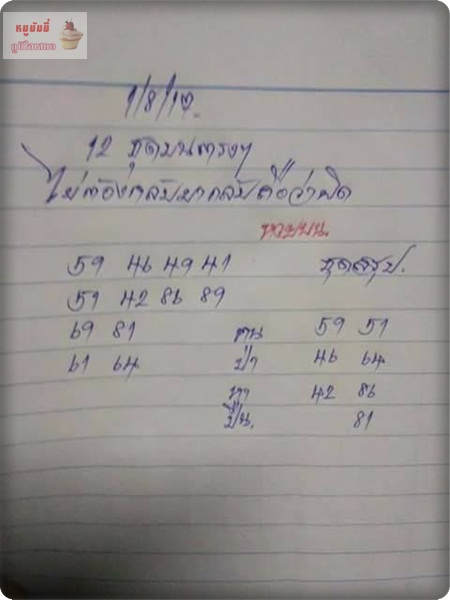 หมูน้อยมี่
ภูมิใจเสนอ
1/8/60
12 ชุดบนตรงๆ
ไม่ต้องกลับมากลับถือว่าผิด
หวยบน
59 46 49 41 ชุดสรุป.
51 42 86 89
69 81 คน 59 51
61 64 ป่า 46 64
42 86
ปืน. 81